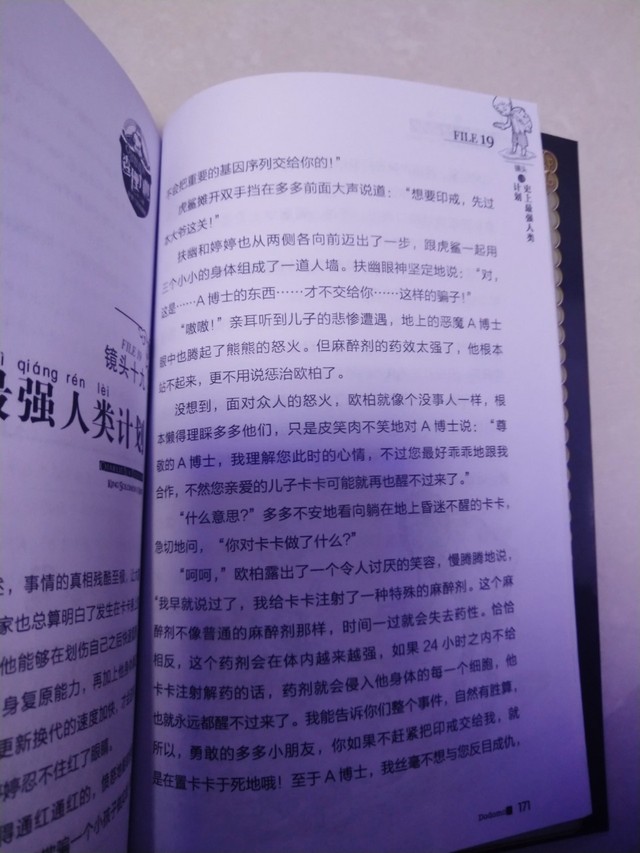 FILE 19
镜头十九
qiáng rén lèi
最强人类计划
述，事情的真相残酷至极，让
家也总算明白了发生在卡卡身上
他能够在划伤自己之后快速
身复原能力，再加上他身体
更新换代的速度加快，才会
婷忍不住红了眼眶。
得通红通红的，愤怒地
骗一个小孩子
FILE 19
镜头
计划
史上最强人类
不会把重要的基因序列交给你的！”
虎鲨摊开双手挡在多多前面大声说道：“想要印戒，先过
本大爷这关！”
扶幽和婷婷也从两侧各向前迈出了一步，跟虎鲨一起用
三个小小的身体组成了一道人墙。扶幽眼神坚定地说：“对，
这是……A博士的东西……才不交给你……这样的骗子！”
“嗷嗷！”亲耳听到儿子的悲惨遭遇，地上的恶魔A博士
眼中也腾起了熊熊的怒火。但麻醉剂的药效太强了，他根本
站不起来，更不用说惩治欧柏了。
没想到，面对众人的怒火，欧柏就像个没事人一样，根
本懒得理睬多多他们，只是皮笑肉不笑地对A博士说：“尊
敬的A博士，我理解您此时的心情，不过您最好乖乖地跟我
合作，不然您亲爱的儿子卡卡可能就再也醒不过来了。”
“什么意思？”多多不安地看向躺在地上昏迷不醒的卡卡，
急切地问，“你对卡卡做了什么？”
“呵呵，”欧柏露出了一个令人讨厌的笑容，慢腾腾地说，
“我早就说过了，我给卡卡注射了一种特殊的麻醉剂。这个麻
醉剂不像普通的麻醉剂那样，时间一过就会失去药性。恰恰
相反，这个药剂会在体内越来越强，如果24小时之内不给
卡卡注射解药的话，药剂就会侵入他身体的每一个细胞，他
也就永远都醒不过来了。我能告诉你们整个事件，自然有胜算，
所以，勇敢的多多小朋友，你如果不赶紧把印戒交给我，就
是在置卡卡于死地哦！至于A博士，我丝毫不想与您反目成仇，
171